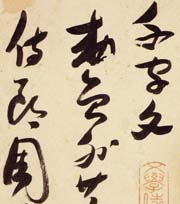 千字文
敕員外散
侍郎周